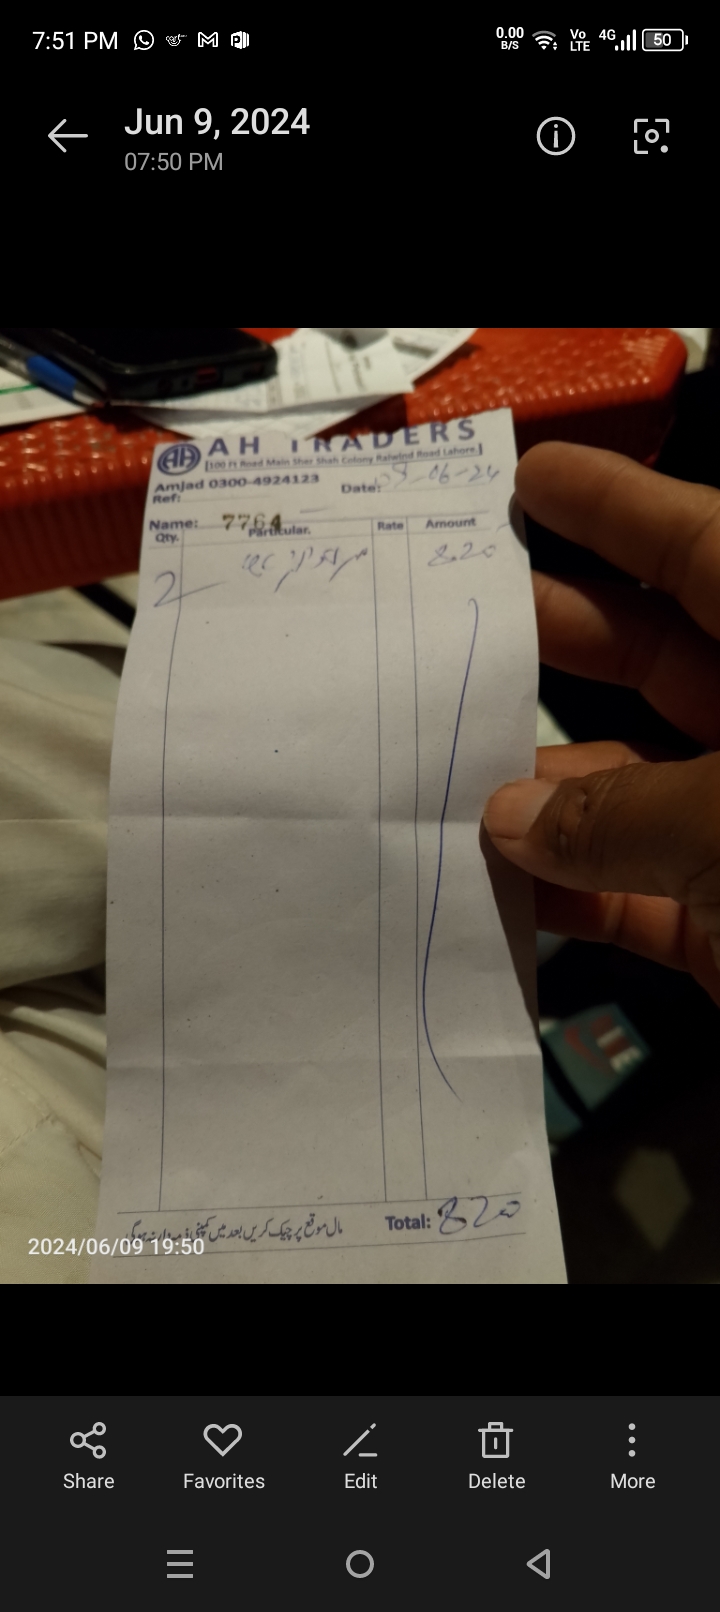 7:51 PM 0.00 B/S Vo LTE 4G 50
Jun 9, 2024
07:50 PM
AH TRADERS
AH
100 Ft Road Main Sher Shah Colony Raiwind Road Lahore.
Amjad 0300-4924123
Date: -06-24
Ref:
Name: 7764
Qty. Particular. Rate Amount
2 820
مال موقع پر چیک کریں بعد میں کمپنی ذمہ دار نہ ہوگی
Total: 820
2024/06/09 19:50
Share Favorites Edit Delete More